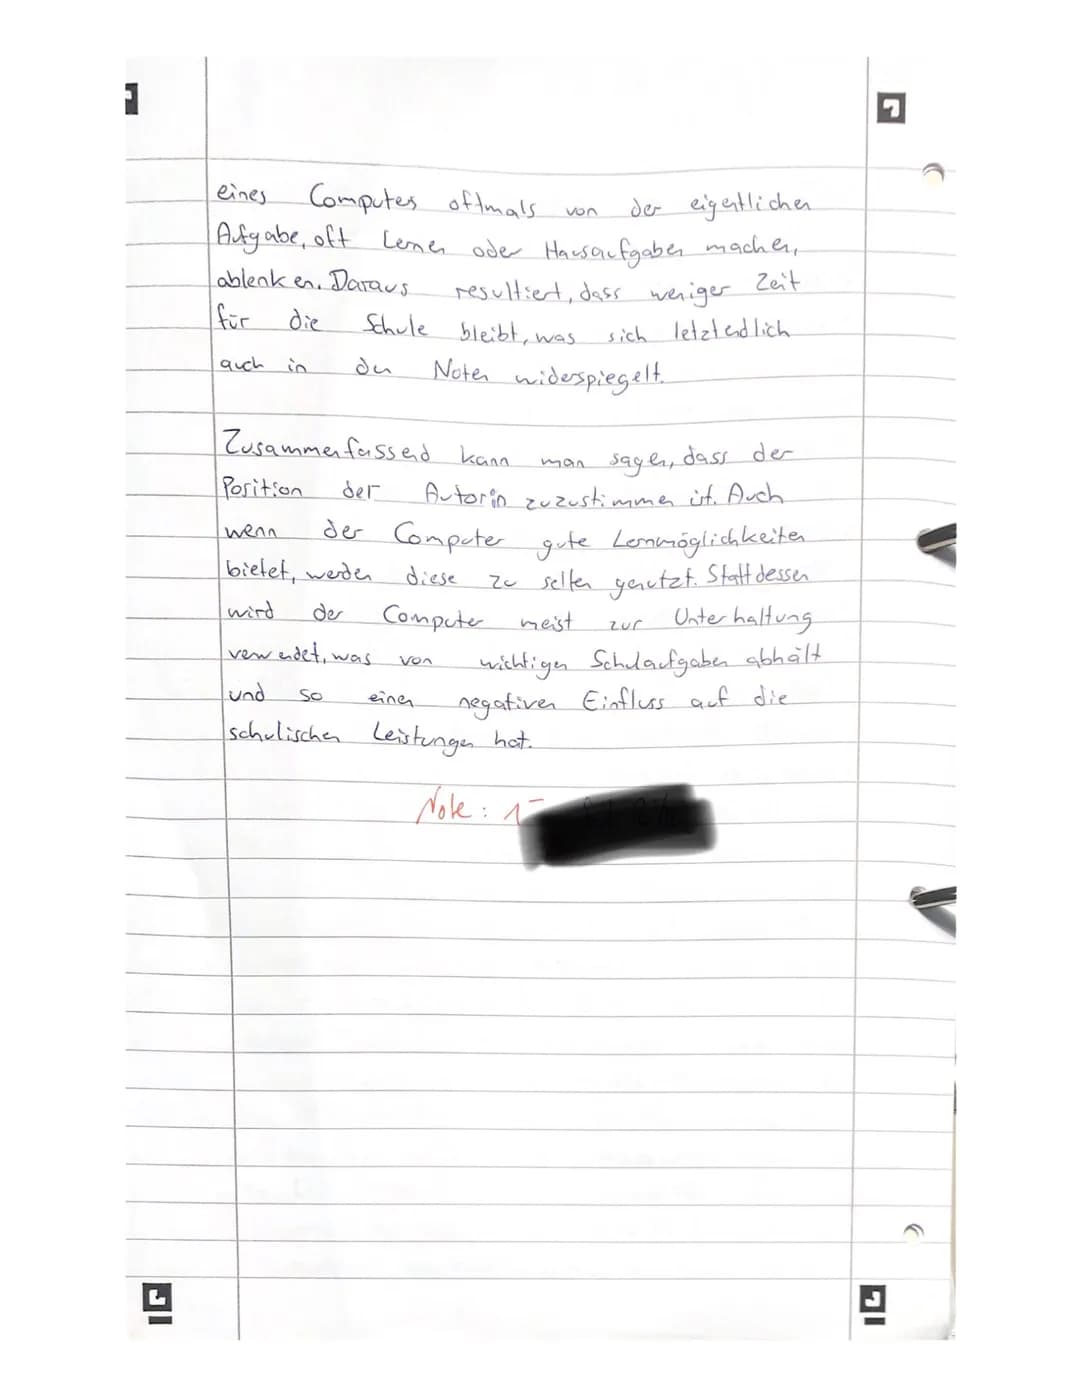 eines Computers oftmals von der eigentlichen
Aufgabe, oft Lernen oder Hausaufgaben machen,
ablenken. Daraus resultiert, dass weniger Zeit
für die Schule bleibt, was sich letztendlich
auch in den Noten widerspiegelt.
Zusammenfassend kann man sagen, dass der
Position der Autorin zuzustimmen ist. Auch
wenn der Computer gute Lernmöglichkeiten
bietet, werden diese zu selten genutzt. Stattdessen
wird der Computer meist zur Unterhaltung
verwendet, was von wichtigen Schulaufgaben abhält
und so einen negativen Einfluss auf die
schulischen Leistungen hat.
Note: 1-